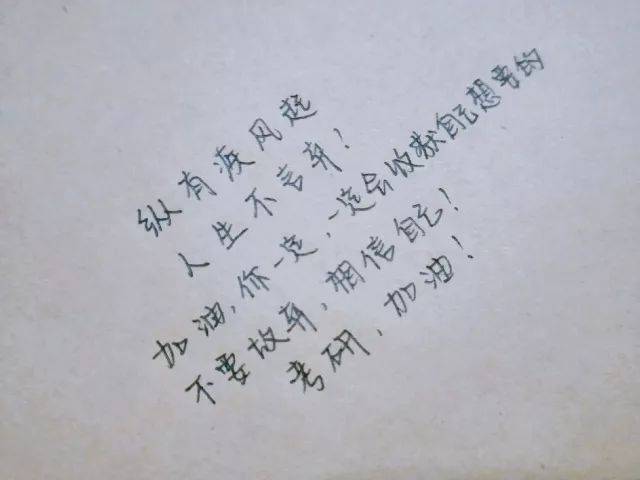 纵有疾风起
人生不言弃！
加油，你一定，一定会收获自己想要的
不要放弃，相信自己！
考研，加油！